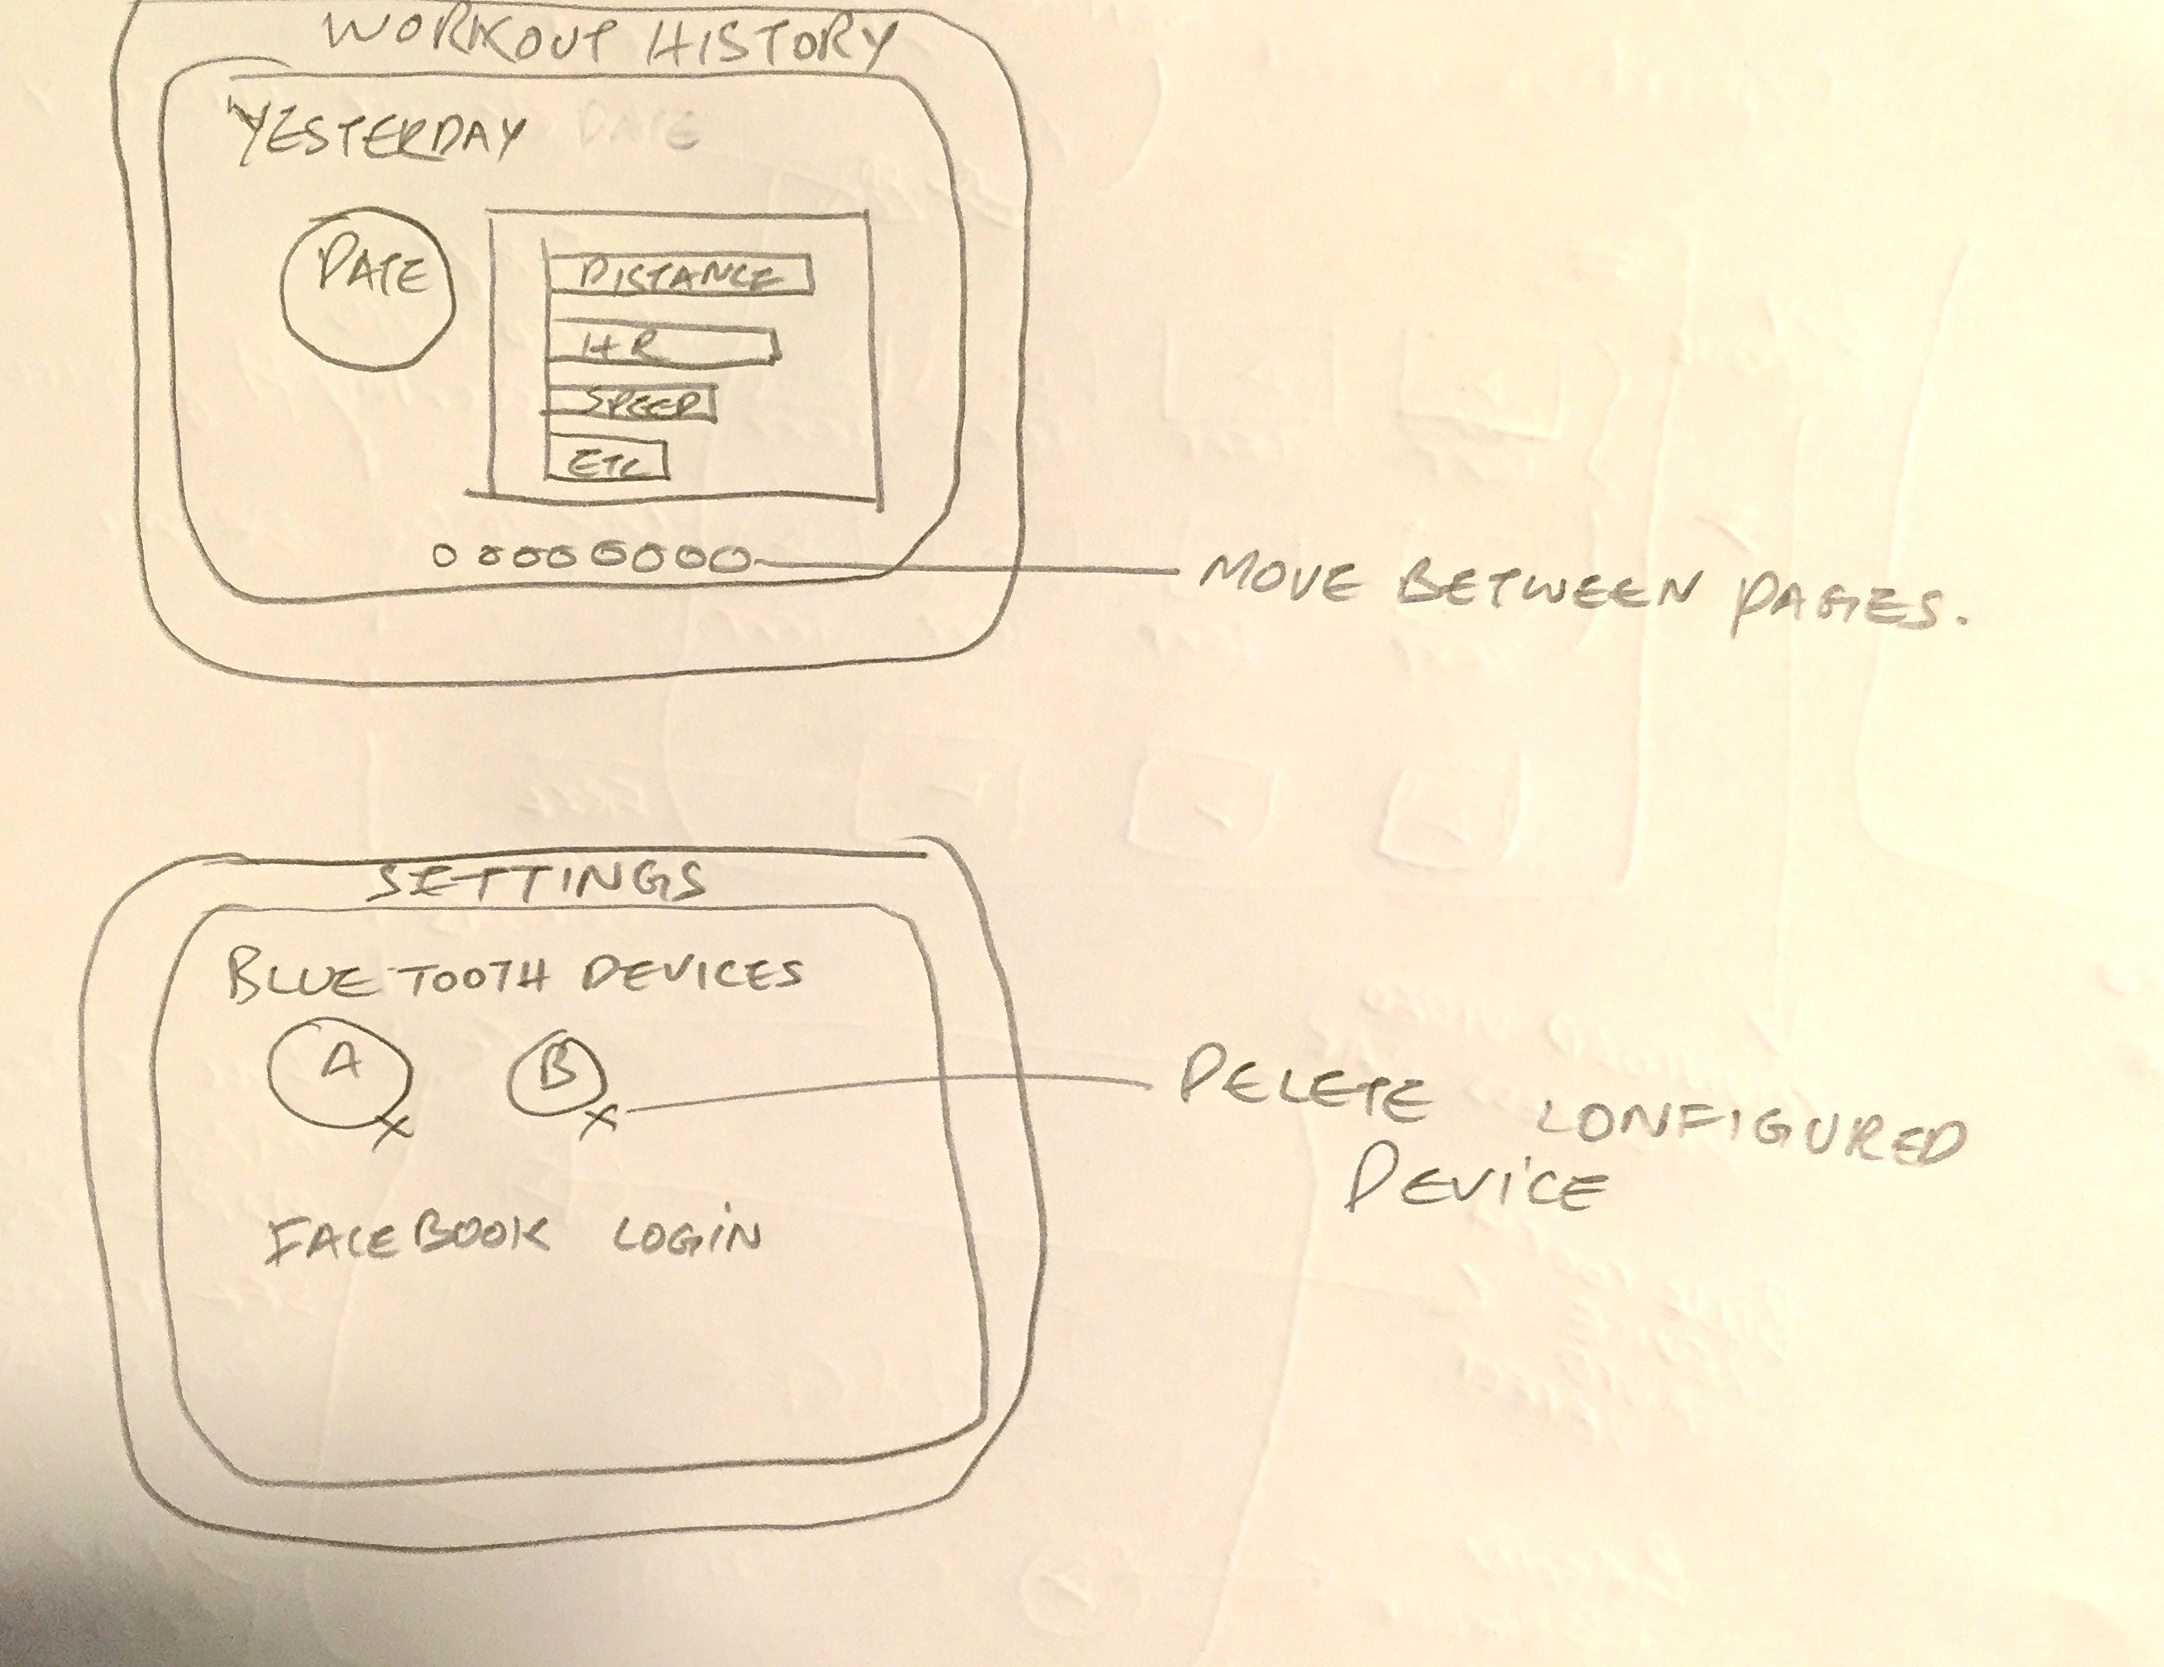 WORKOUT HISTORY
YESTERDAY DATE
DATE
DISTANCE
HR
SPEED
ETC
MOVE BETWEEN PAGES.
SETTINGS
BLUETOOTH DEVICES
A B
X X
DELETE CONFIGURED
DEVICE
FACEBOOK LOGIN